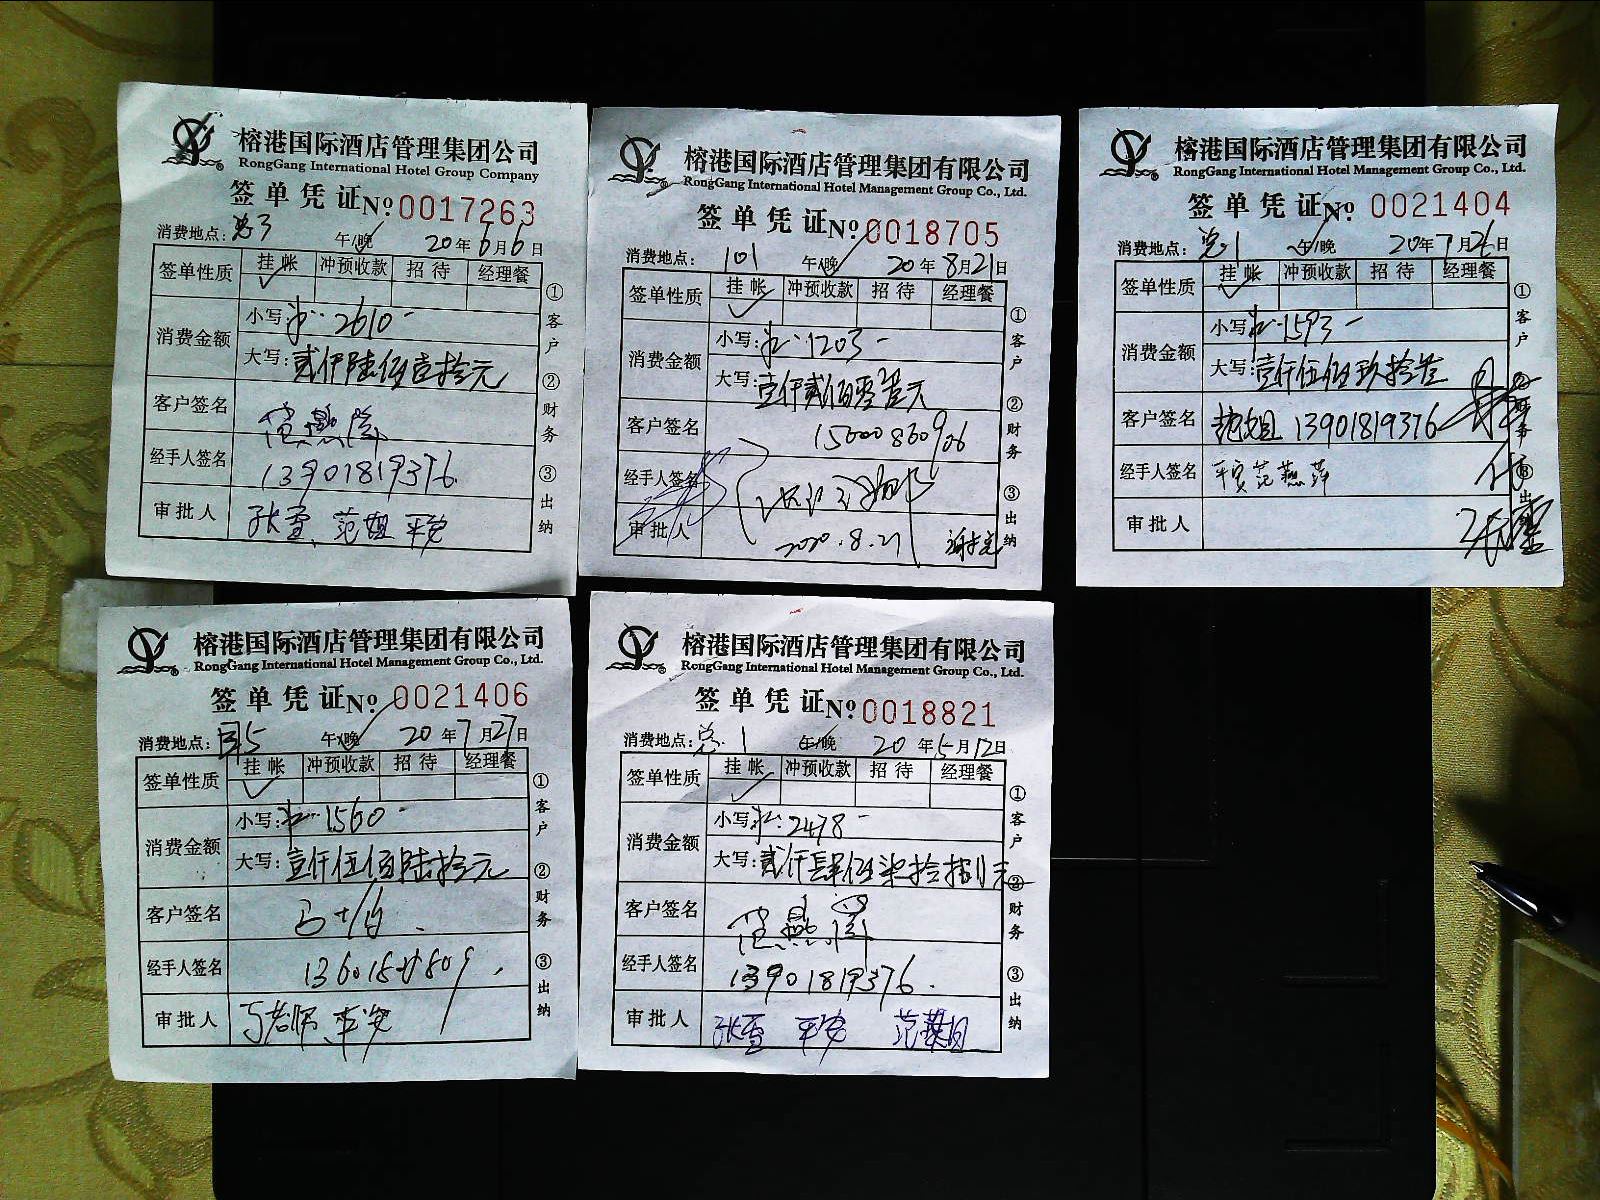 榕港国际酒店管理集团公司
RongGang International Hotel Group Company
签单凭证 № 0017263
消费地点: 总3 午/晚 20年6月6日
签单性质 挂帐 冲预收款 招待 经理餐
消费金额 小写: 2610-
大写: 贰仟陆佰壹拾元
客户签名
经手人签名 13901819376
审批人 张雪、范姐 平安
①客户 ②财务 ③出纳
榕港国际酒店管理集团有限公司
RongGang International Hotel Management Group Co., Ltd.
签单凭证 № 0018705
消费地点: 101 午/晚 20年8月21日
签单性质 挂帐 冲预收款 招待 经理餐
消费金额 小写: 1203-
大写: 壹仟贰佰零叁元
客户签名 15000860906
经手人签名
审批人 2020.8.21
①客户 ②财务 ③出纳
榕港国际酒店管理集团有限公司
RongGang International Hotel Management Group Co., Ltd.
签单凭证 № 0021404
消费地点: 总1 午/晚 20年7月26日
签单性质 挂帐 冲预收款 招待 经理餐
消费金额 小写: 1593-
大写: 壹仟伍佰玖拾叁
客户签名 范姐 13901819376
经手人签名 平安 范燕萍
审批人 张雪
①客户 ②财务 ③出纳
榕港国际酒店管理集团有限公司
RongGang International Hotel Management Group Co., Ltd.
签单凭证 № 0021406
消费地点: 5 午/晚 20年7月27日
签单性质 挂帐 冲预收款 招待 经理餐
消费金额 小写: 1560-
大写: 壹仟伍佰陆拾元
客户签名
经手人签名
审批人 马老师、平安
①客户 ②财务 ③出纳
榕港国际酒店管理集团有限公司
RongGang International Hotel Management Group Co., Ltd.
签单凭证 № 0018821
消费地点: 总1 午/晚 20年5月12日
签单性质 挂帐 冲预收款 招待 经理餐
消费金额 小写: 2478-
大写: 贰仟肆佰柒拾捌元
客户签名
经手人签名 13901819376.
审批人 张雪 平安 范燕姐
①客户 ②财务 ③出纳